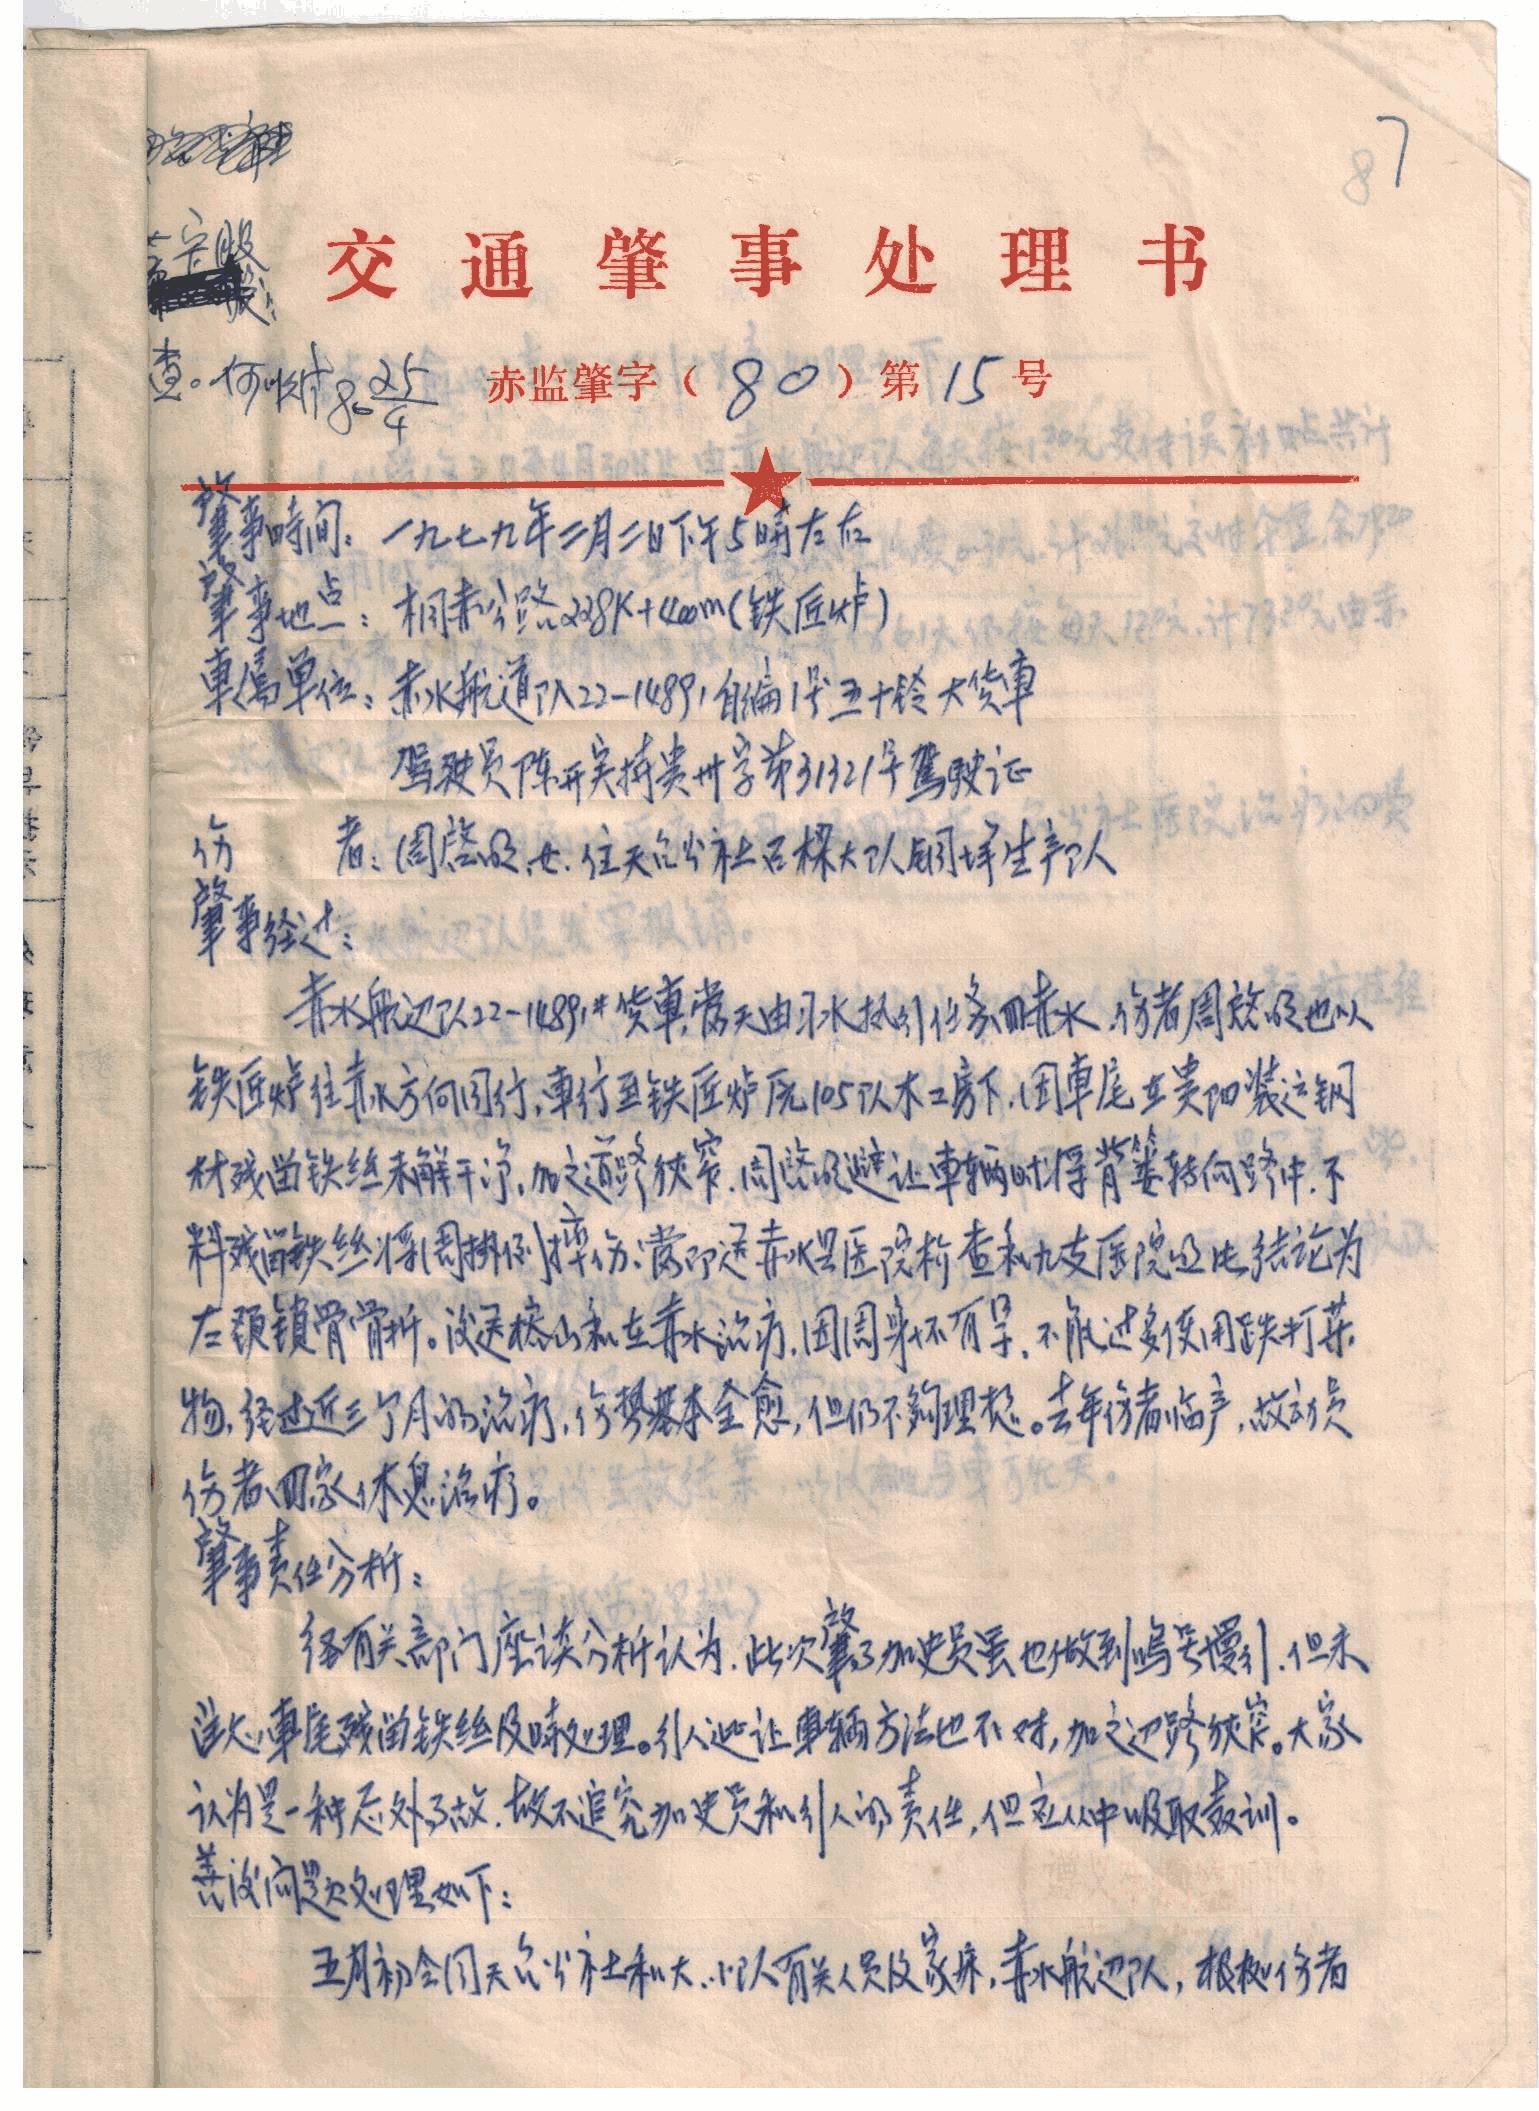 87
交通肇事处理书
赤监肇字(80)第15号
查。
80 25/4
肇事時间：一九七九年二月二日下午5時左右
肇事地点：桐赤公路228K+400m(铁匠炉)
車属单位：赤水航道队22-14891自编1号五十铃大货車
驾驶员陈开实持贵州字第31321号驾驶证
伤者：周啓明，女．住天台公社石樑大队铜坪生产队
肇事经过：
赤水航辺队22-14891#货車，当天由习水执行任务回赤水．伤者周啓明也从
铁匠炉往赤水方向同行，車行至铁匠炉原105队木工房下，因車尾在贵阳装运钢
材残留铁丝未解干净，加之道路狭窄．周啓明避让車辆时将背篓转向路中．不
料残留铁丝将周掛倒摔伤；当即送赤水县医院检查和九支医院迠比结论为
左颈锁骨骨折。后送榕山和在赤水治疗，因周身怀有孕，不能过多使用跌打药
物，经过近三个月的治疗，伤势基本全愈，但仍不夠理想。去年伤者临产，故动员
伤者回家休息治疗。
肇事责任分析：
经有关部门座谈分析认为．此次肇事加史员虽也做到鸣号慢行，但未
注意車尾残留铁丝及時处理。行人避让車辆方法也不对，加之辺路狭窄。大家
认为是一种意外事故．故不追究加史员和行人的责任，但应从中吸取教训。
善后问题处理如下：
五月初会同天台公社和大．小队有关人员及家床，赤水航辺队，根据伤者